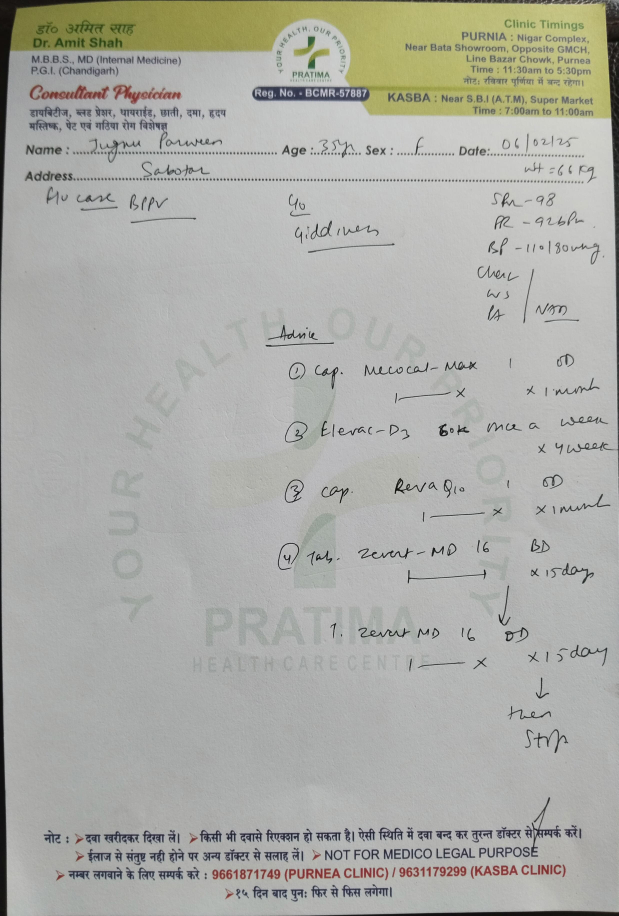 डॉ० अमित साह
Dr. Amit Shah
M.B.B.S., MD (Internal Medicine)
P.G.I. (Chandigarh)
Consultant Physician
डायबिटीज, ब्लड प्रेशर, थायराईड, छाती, दमा, हृदय
मस्तिष्क, पेट एवं गठिया रोग विशेषज्ञ
YOUR HEALTH, OUR PRIORITY
PRATIMA
HEALTH CARE CENTRE
Reg. No. - BCMR-57887
Clinic Timings
PURNIA : Nigar Complex,
Near Bata Showroom, Opposite GMCH,
Line Bazar Chowk, Purnea
Time : 11:30am to 5:30pm
नोट: रविवार पूर्णिया में बन्द रहेगा।
KASBA : Near S.B.I (A.T.M), Super Market
Time : 7:00am to 11:00am
Name : Jugnu Parween Age : 35yr Sex : F Date: 06/02/25
Address Sabotar wt = 66 kg
H/o case BPPV
c/o
Giddiness
SPO2 - 98
PR - 92bpm
BP - 110/80mmHg
Chest
PA
NAD
Advice
① Cap. Mecocal-Max 1 OD
1 — x x 1 month
② Elevac-D3 60k once a week
x 4 week
③ Cap. Reva Q10 1 OD
1 — x x 1 month
④ Tab. Zevert-MD 16 BD
x 15 days
T. Zevert MD 16 OD
1 — x x 15 day
then
Stop
YOUR HEALTH OUR PRIORITY
PRATIMA
HEALTH CARE CENTRE
नोट : ➤ दवा खरीदकर दिखा लें। ➤ किसी भी दवासे रिएक्शन हो सकता है। ऐसी स्थिति में दवा बन्द कर तुरन्त डॉक्टर से सम्पर्क करें।
➤ ईलाज से संतुष्ट नही होने पर अन्य डॉक्टर से सलाह लें। ➤ NOT FOR MEDICO LEGAL PURPOSE
➤ नम्बर लगवाने के लिए सम्पर्क करे : 9661871749 (PURNEA CLINIC) / 9631179299 (KASBA CLINIC)
➤ १५ दिन बाद पुनः फिर से फिस लगेगा।